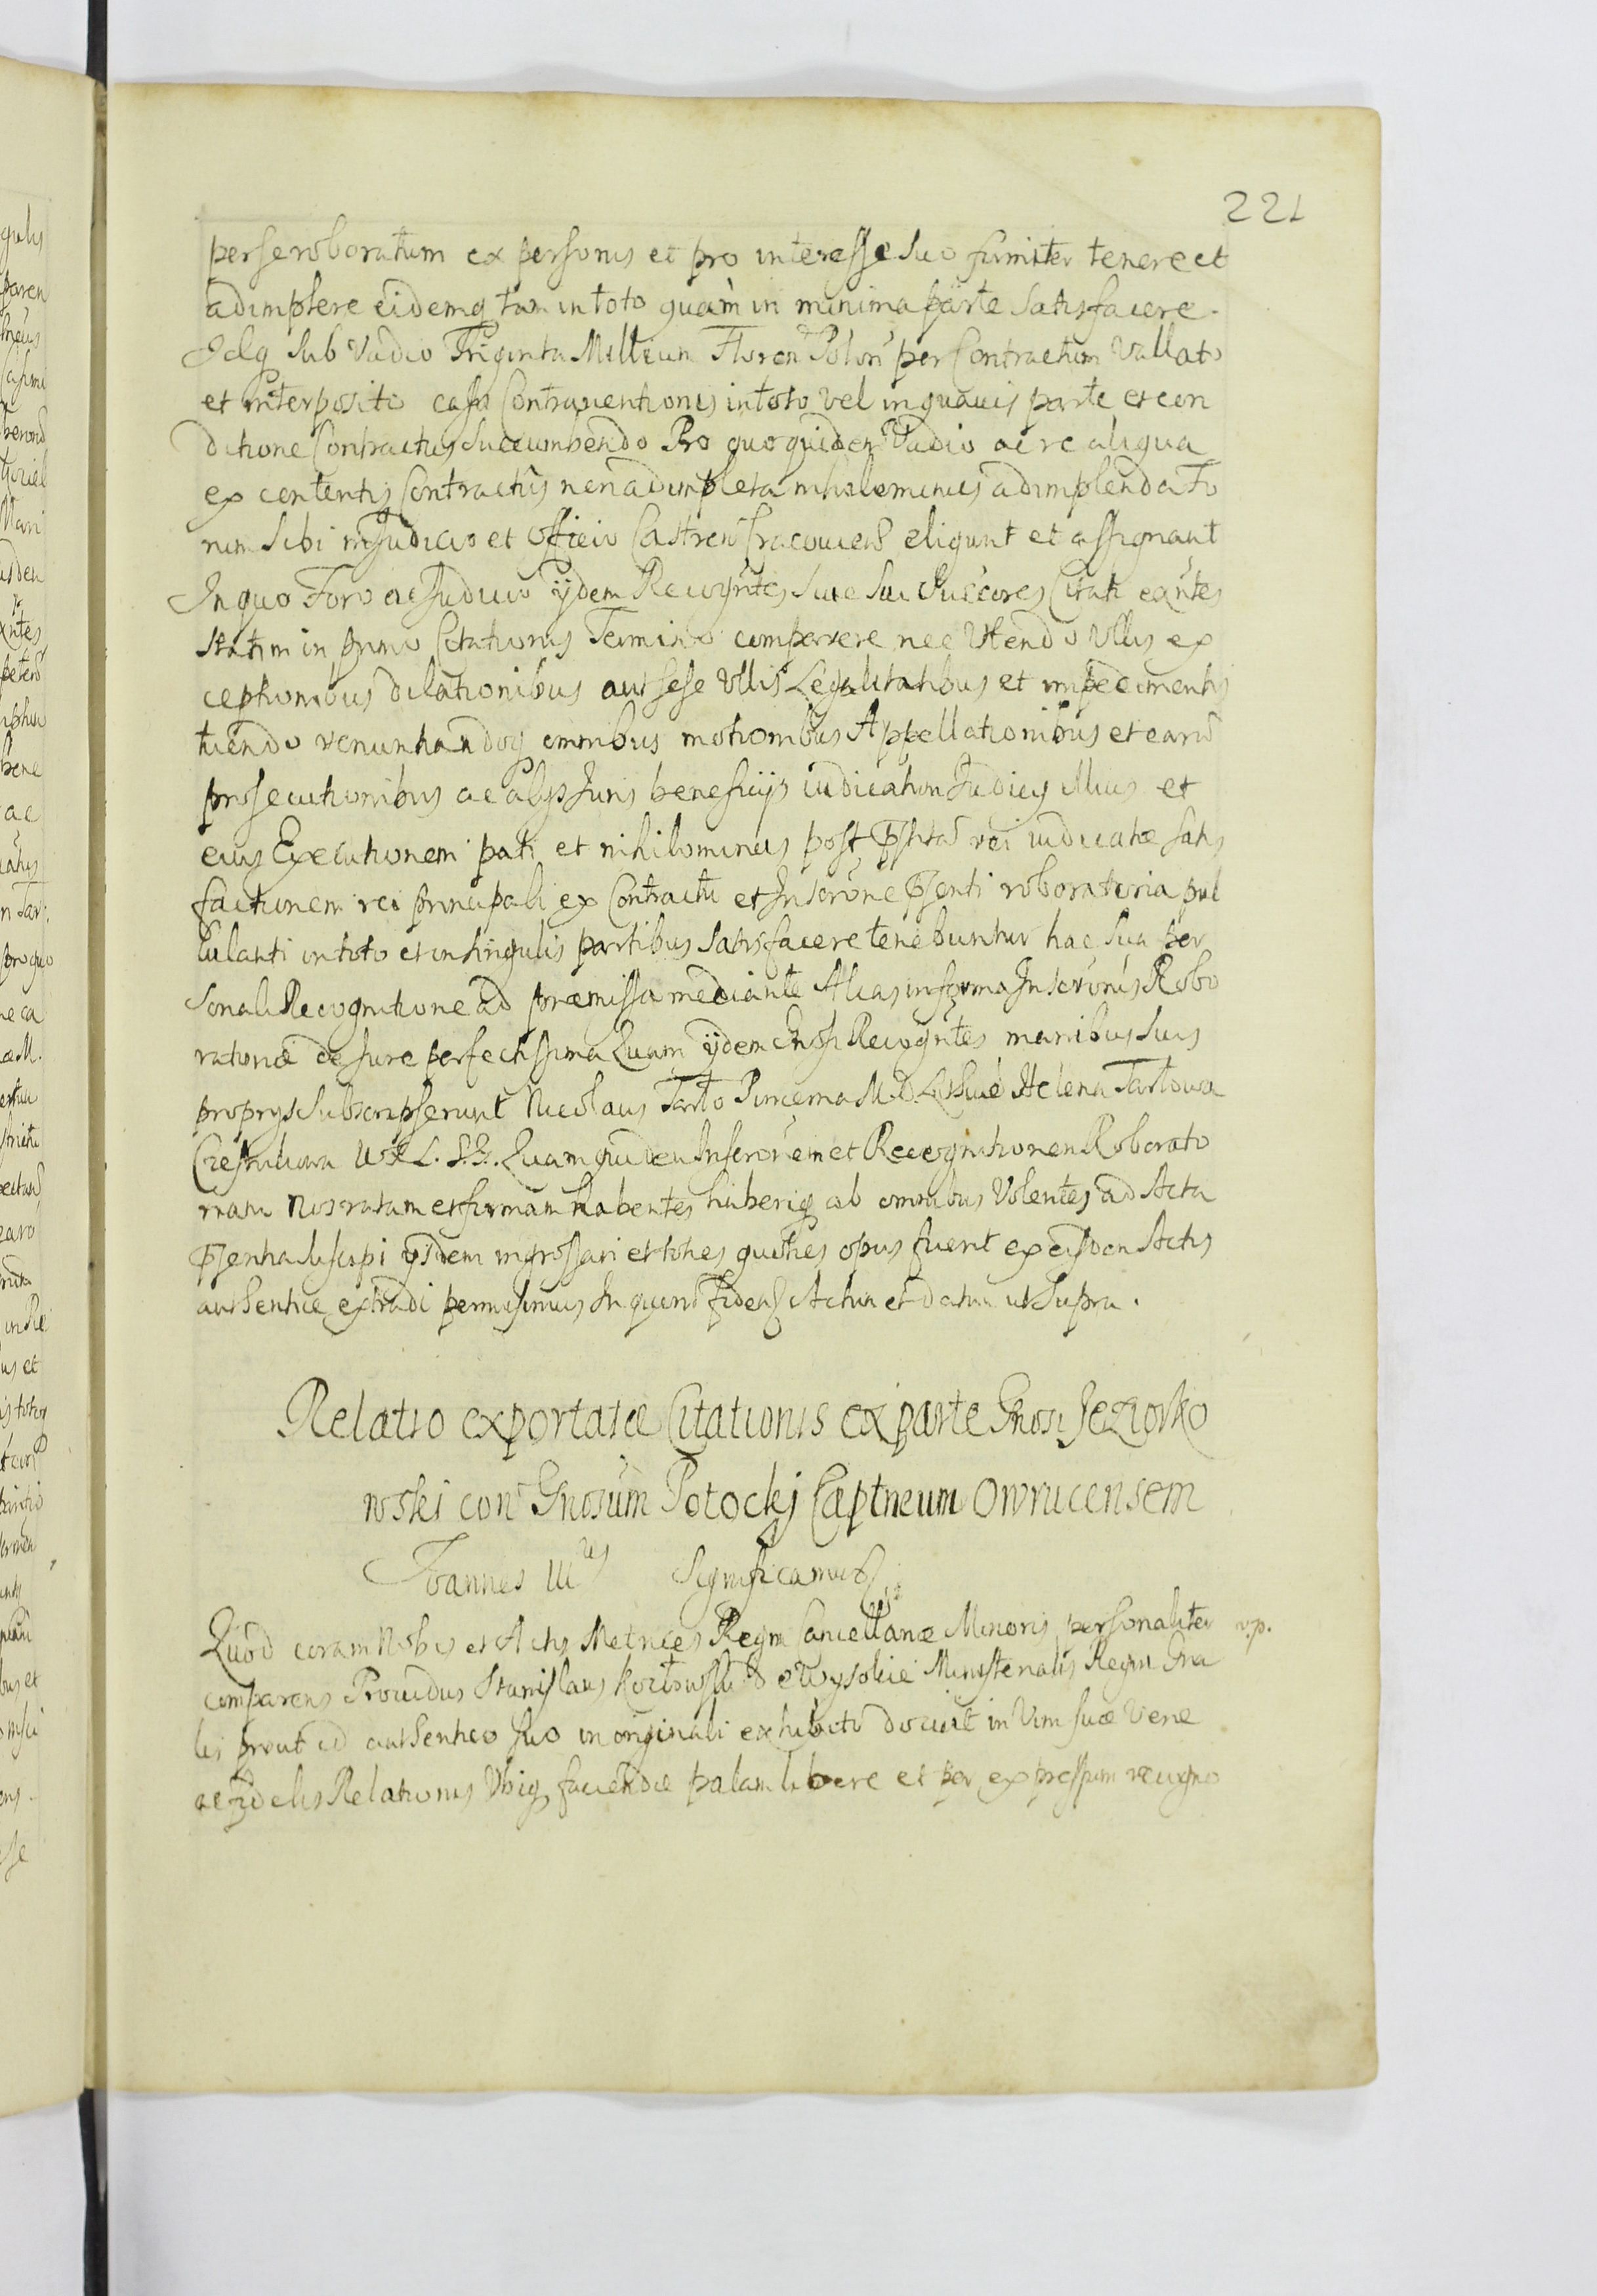 221
perse roboratum ex personis et pro interesse suo firmiter tenere et
adimplere eidemq tam in toto quàm in minima parte satisfacere.
Idq sub vadio Triginta Millium Floren Polon per Contractum vallato
et interposito casu Contrauentionis in toto vel in quauis parte et con
ditione Contractus succumbendo Pro quo quidem Vadio ac re aliqua
ex contentis Contractus non adimpleta nihilominus adimplenda Fo
rum sibi in Judicio et Officio Castren Cracouien eligunt et assignant
In quo Foro ac Judicio ijdem Recogntes siue sui Succores Citati exntes
statim in primo Citationis Termino comparere nec Utendo Ullis ex
ceptionibus dilationibus aut sese Ullis Legalitatibus et impedimentis
tuendo renuntiandoq omnibus motionibus Appellationibus et earu
prosecutionibus ac alijs Juris beneficijs iudicatum Judicij illius et
eius Executionem pati et nihilominus post pstita rei iudicatæ satis
factionem rei principali ex Contractu et Inscrone psenti roboratoria pul
lulanti in toto et in singulis partibus satisfacere tenebuntur hac sua per
sonali Recognitione ad præmissa mediante Alias in forma Inscronis Robo
rationæ de Jure perfectissima Quam ijdem Gnosi Recogntes manibus suis
proprijs subscripserunt Nicolaus Tarło Pincerna M. D. L. siue Helena Tarłowa
L. S. Quam quidem Inscronem et Recognitionem Roborato
riam Nos ratam et firmam habentes haberiq ab omnibus Volentes ad Acta
psentia suscipi ijsdem ingrossari et toties quoties opus fuerit ex eisdem Actis
authentice extradi permisimus In quoru fidem Actum et datum ut supra.
Relatio exportatæ Citationis ex parte Gnosi Jeziorko
wski con Gnosum Potockj Captneum Owrucensem
Joannes III Significamus
Quod coram Nobis et Actis Metrices Regni Cancellariæ Minoris personaliter v. p.
comparens Prouidus Stanislaus de Wysokie Ministerialis Regni Gna
lis prout id authentico suo in originali exhibito docuit in Vim suæ veræ
ac fidelis Relationis Ubiq faciendæ palam libere et per expressum recogno